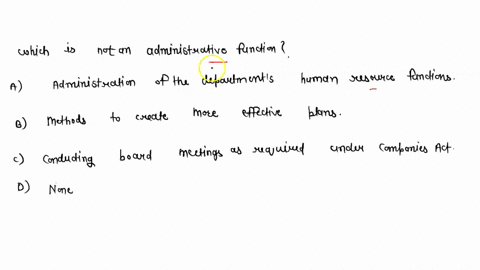 which is not an administrative function?
A) Administration of the department's human resource functions.
B) Methods to create more effective plans.
C) Conducting board meetings as required under Companies Act.
D) None